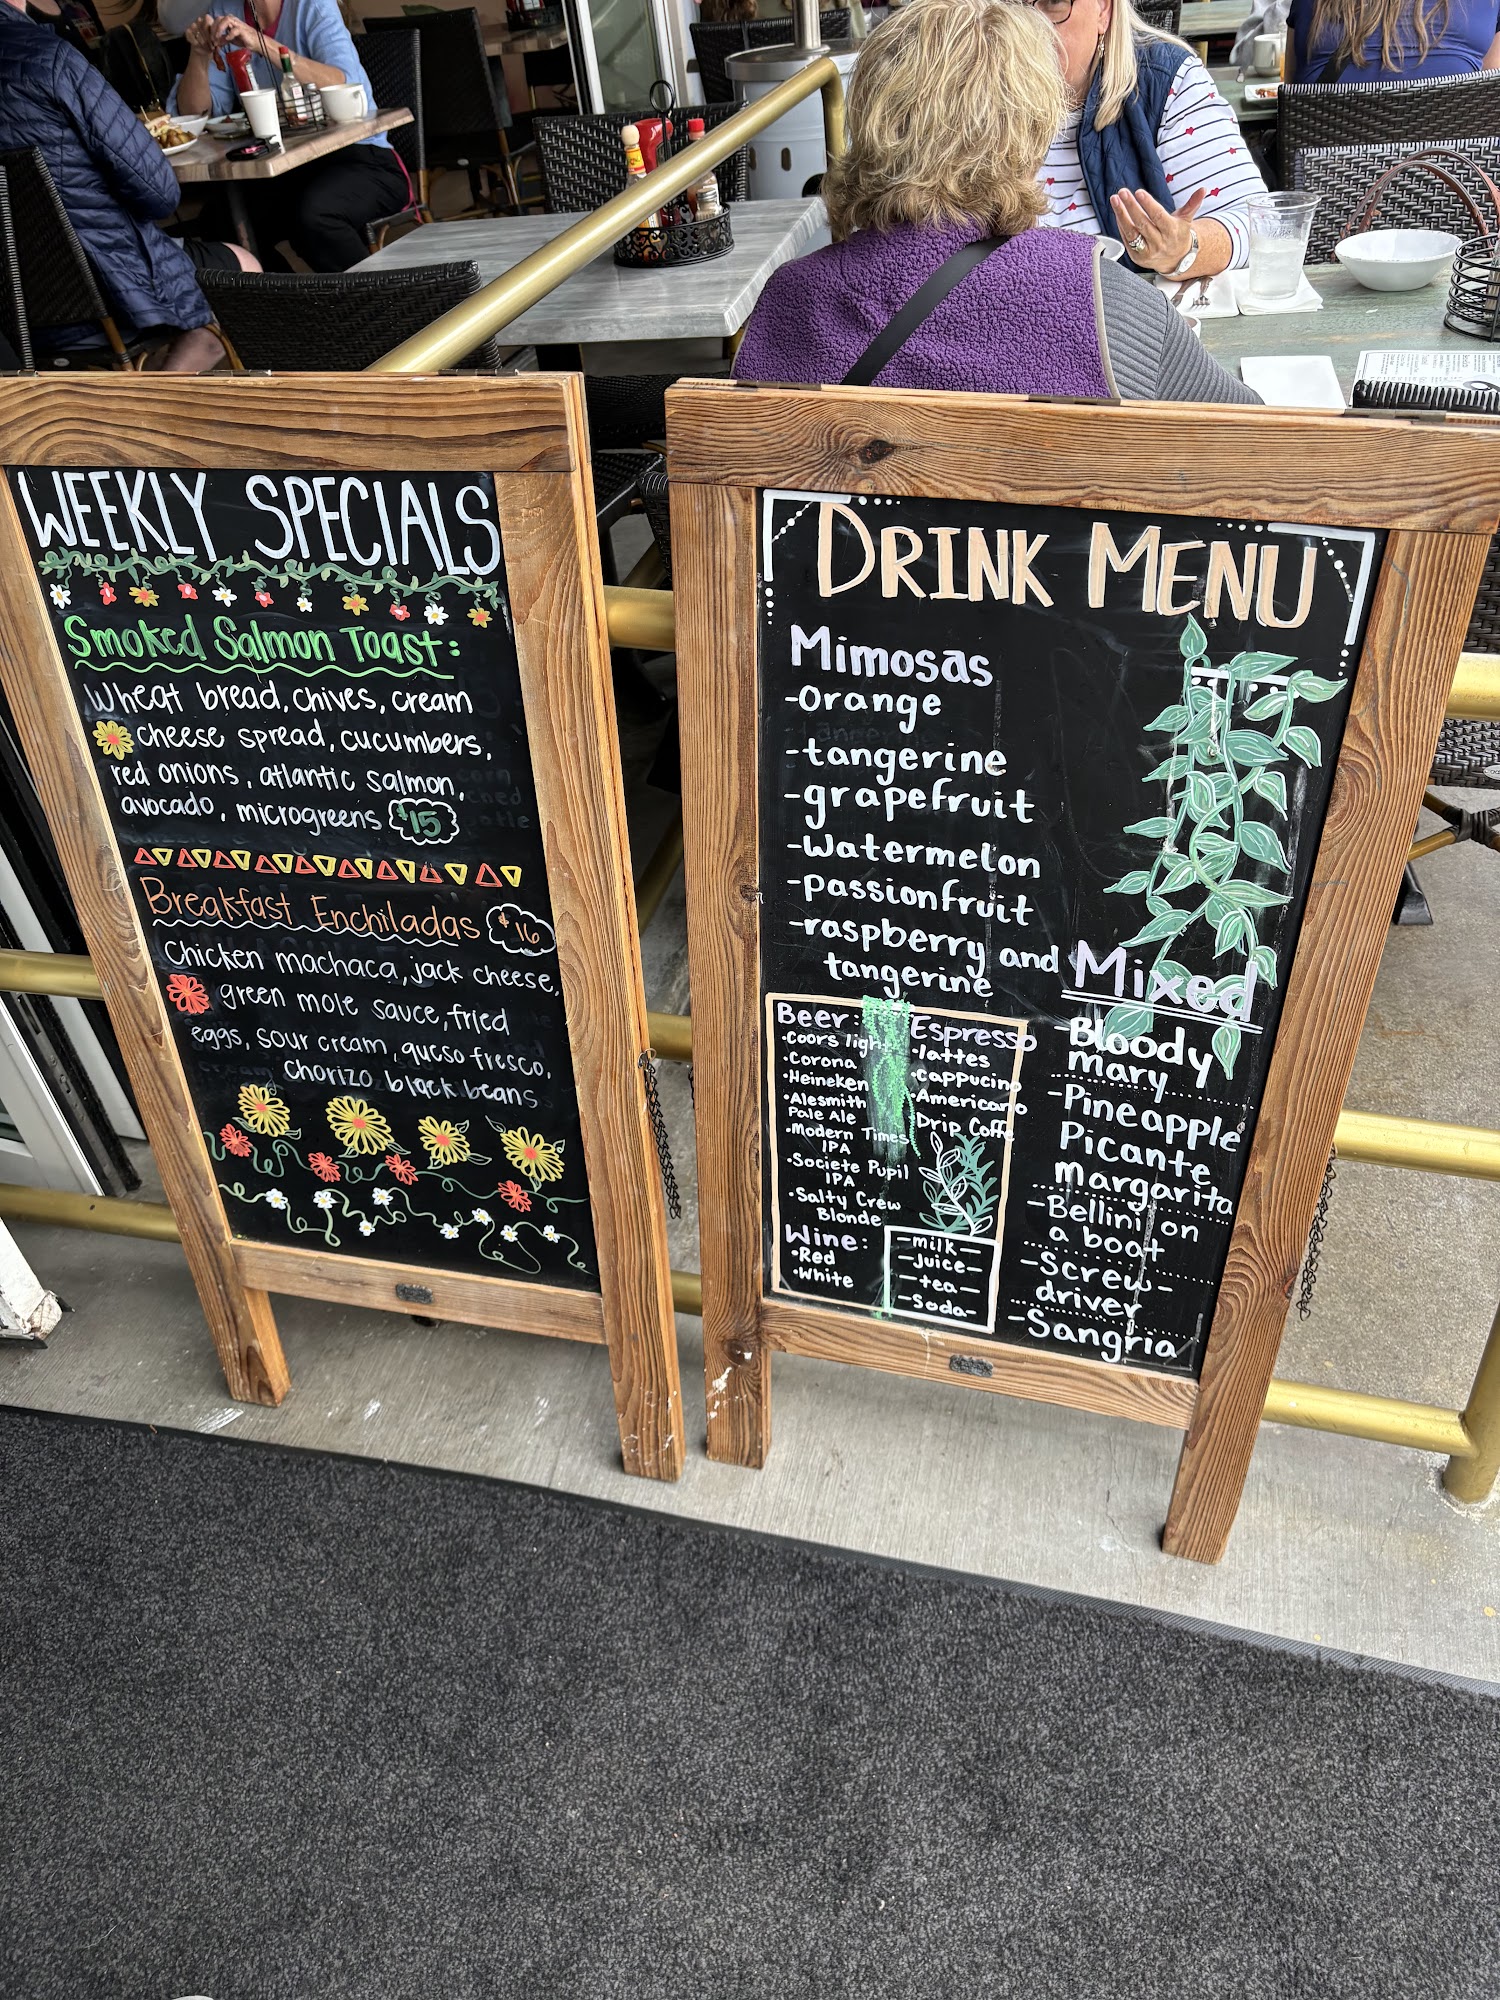 WEEKLY SPECIALS
Smoked Salmon Toast:
Wheat bread, chives, cream
cheese spread, cucumbers,
red onions, atlantic salmon,
avocado, microgreens $15
Breakfast Enchiladas $16
Chicken machaca, jack cheese,
green mole sauce, fried
eggs, sour cream, queso fresco,
Chorizo black beans
DRINK MENU
Mimosas
-Orange
-tangerine
-grapefruit
-Watermelon
-passionfruit
-raspberry and
tangerine
Beer:
•Coors light
•Corona
•Heineken
•Alesmith
Pale Ale
•Modern Times
IPA
•Societe Pupil
IPA
•Salty Crew
Blonde
Wine:
•Red
•White
Espresso
•lattes
•cappucino
•Americano
•Drip Coffe
-milk-
-juice-
-tea-
-Soda-
Mixed
-Bloody
mary
-Pineapple
Picante
margarita
-Bellini on
a boat
-Screw-
driver
-Sangria